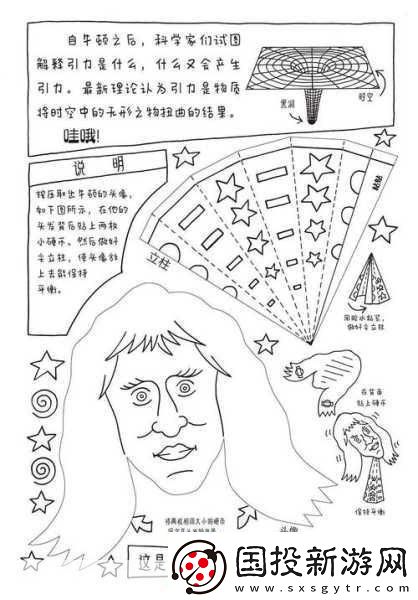 自牛顿之后，科学家们试图
解释引力是什么，什么又会产生
引力。最新理论认为引力是物质
将时空中的无形之物扭曲的结果。
哇哦！
黑洞
时空
说 明
按压取出牛顿的头像，
如下图所示，在他的
头发背后贴上两枚
小硬币。然后做好
尖立柱，使头像放
上去能保持
平衡。
立柱
粘贴
用胶水粘牢，
做好尖立柱
在背面
贴上硬币
保持平衡
将两枚相同大小的硬币
头像
这是
国投新游网
www.sxsgytr.com